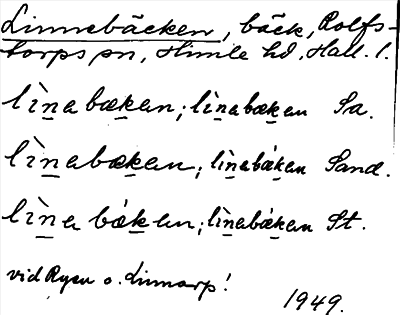 Linnebäcken, bäck, Rolfs-
torps sn, Himle hd, Hall. l.
lìnabæken; lìnabæken Sa.
lìnabæken; lìnabǽken Sand.
lìna bǽken; lìnabǽken St.
vid Ryen o. Linnarp!
1949.